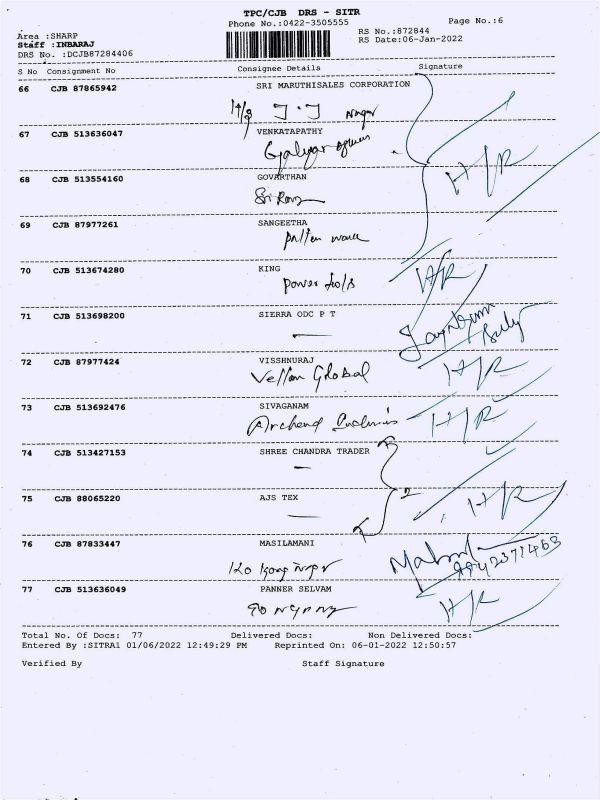 TPC/CJB DRS - SITR
Phone No.:0422-3505555
Page No.:6
Area :SHARP
RS No.:872844
Staff :INBARAJ
RS Date:06-Jan-2022
DRS No. :DCJB87284406
S No Consignment No Consignee Details Signature
66 CJB 87865942 SRI MARUTHISALES CORPORATION
Nagar
67 CJB 513636047 VENKATAPATHY
H/R
68 CJB 513554160 GOVARTHAN
69 CJB 87977261 SANGEETHA
70 CJB 513674280 KING
Power tools H/R
71 CJB 513698200 SIERRA ODC P T
72 CJB 87977424 VISSHNURAJ
Vellan Global H/R
73 CJB 513692476 SIVAGANAM
H/R
74 CJB 513427153 SHREE CHANDRA TRADER
75 CJB 88065220 AJS TEX
2 H/R
76 CJB 87833447 MASILAMANI
77 CJB 513636049 PANNER SELVAM
H/R
Total No. Of Docs: 77 Delivered Docs: Non Delivered Docs:
Entered By :SITRA1 01/06/2022 12:49:29 PM Reprinted On: 06-01-2022 12:50:57
Verified By Staff Signature